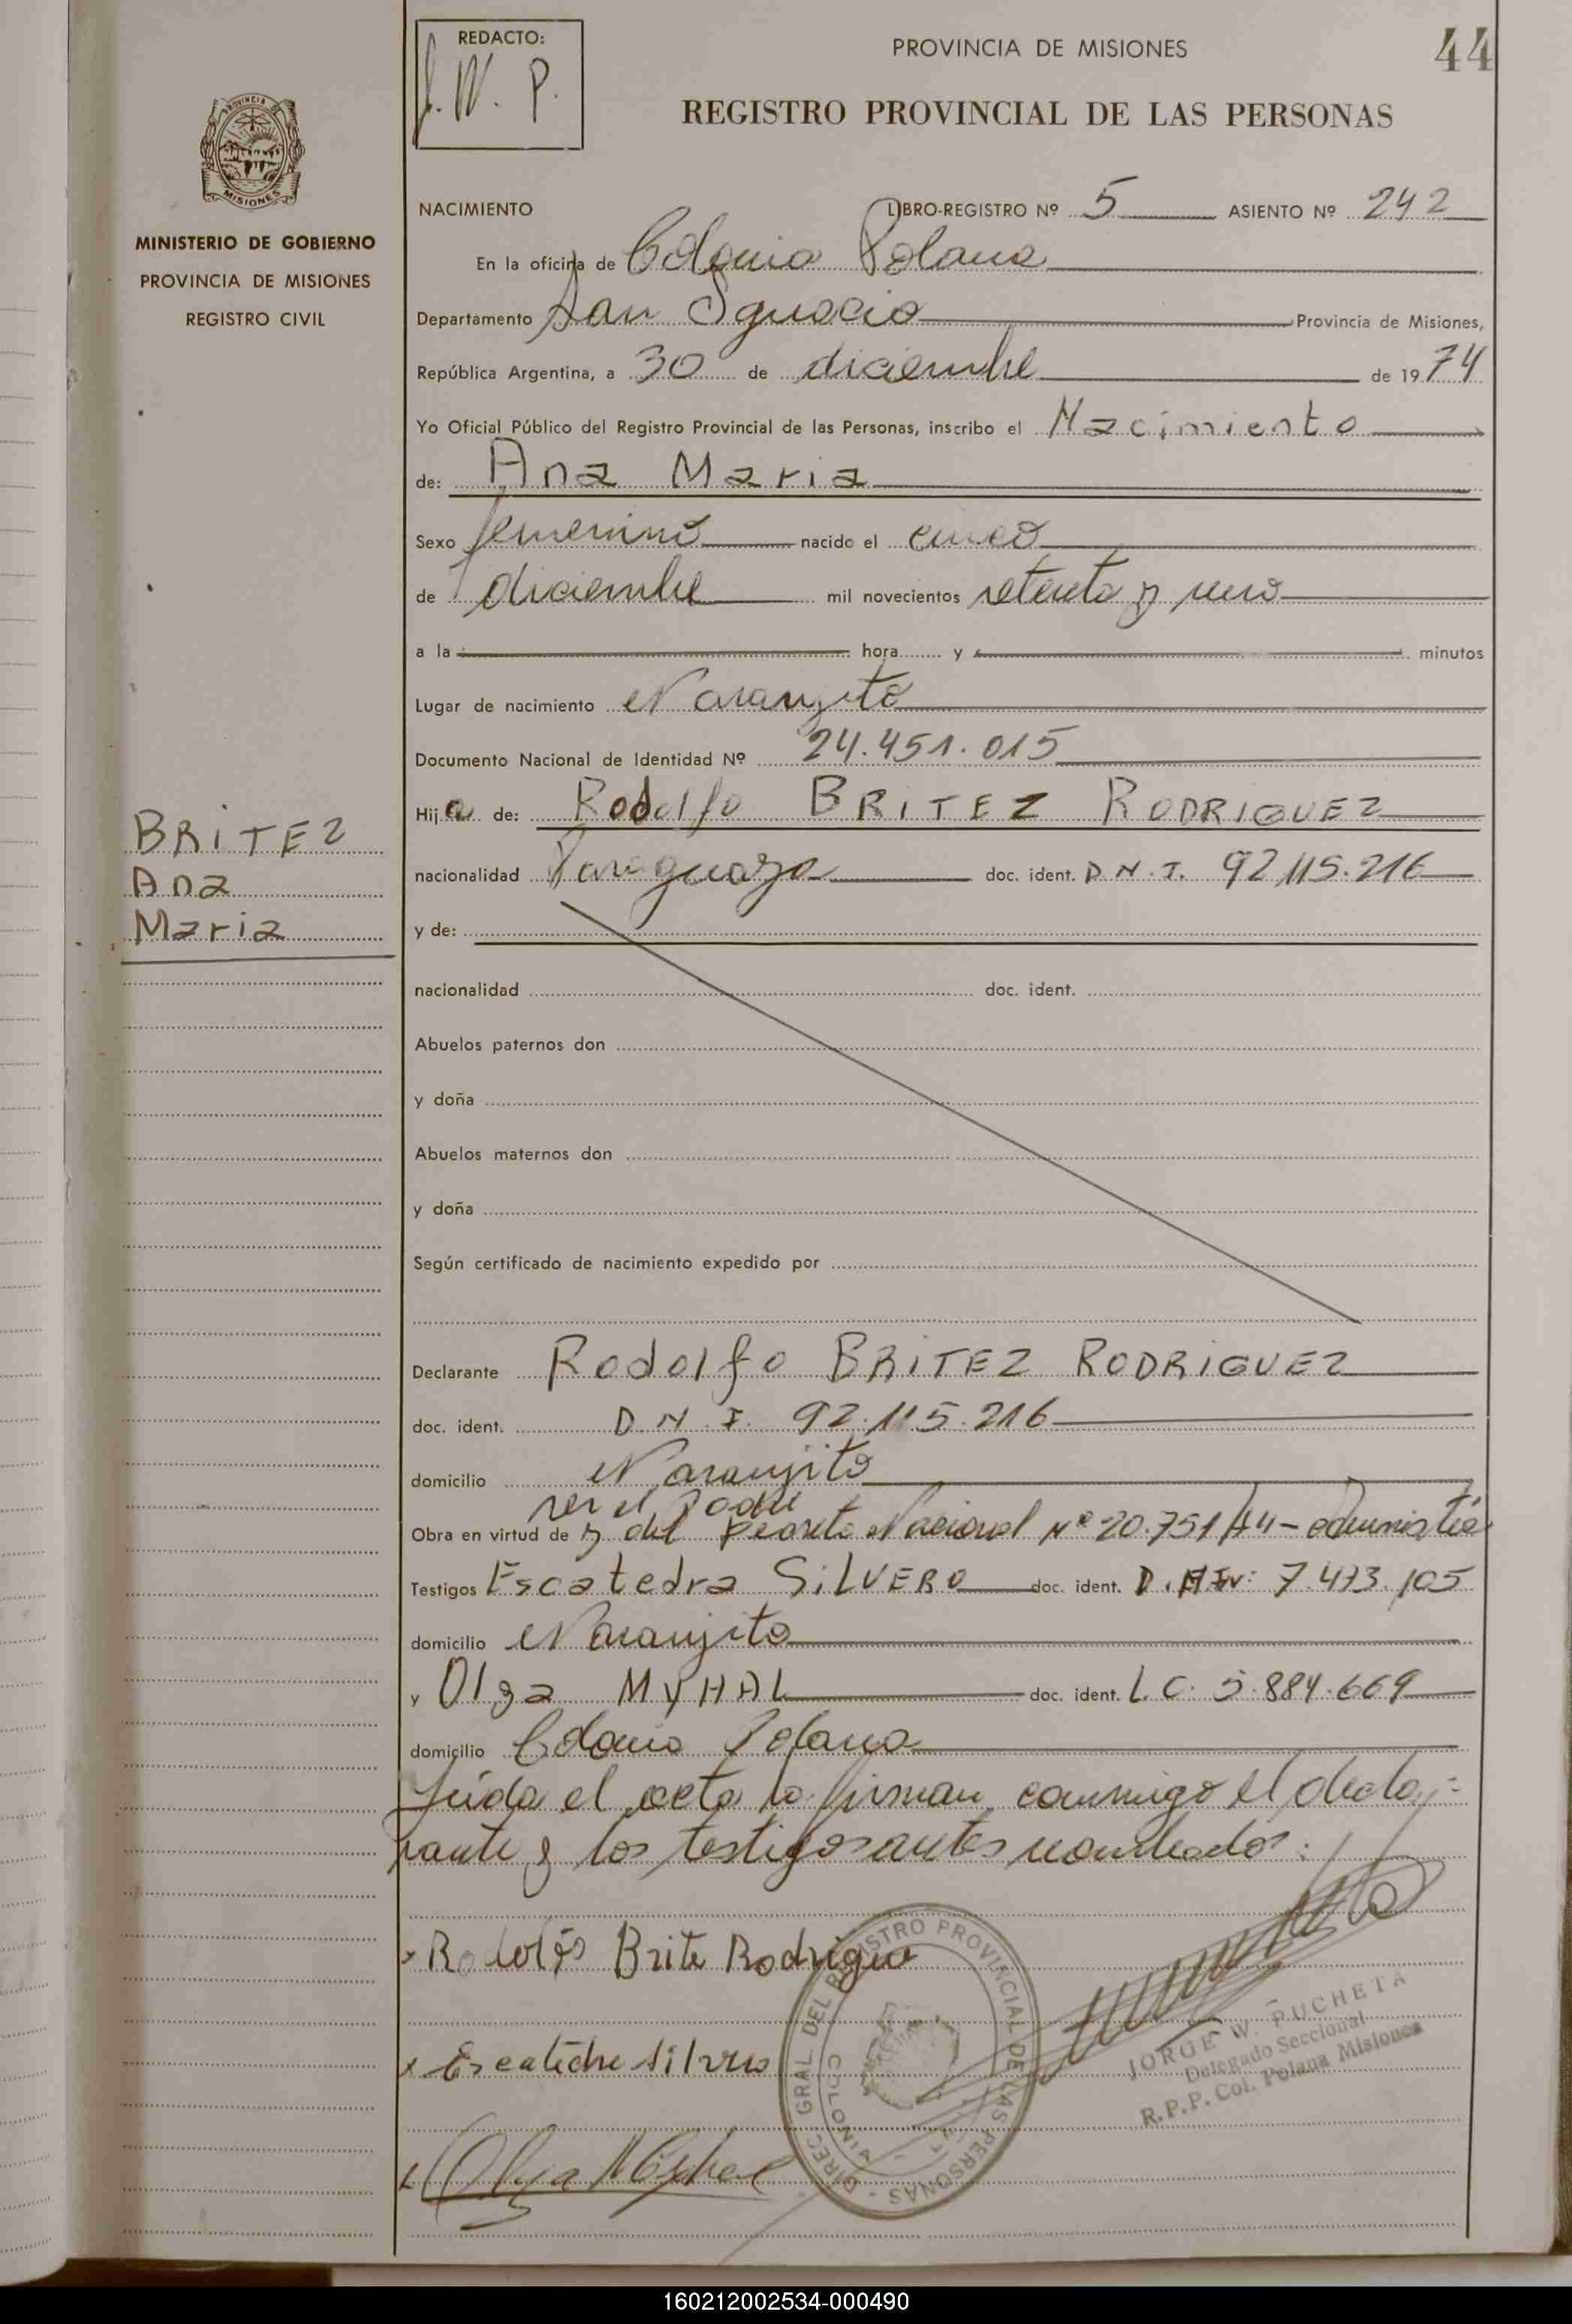 REDACTO:
J. W. P.
PROVINCIA DE MISIONES
44
REGISTRO PROVINCIAL DE LAS PERSONAS
PROVINCIA DE
MISIONES
MINISTERIO DE GOBIERNO
PROVINCIA DE MISIONES
REGISTRO CIVIL
NACIMIENTO LIBRO-REGISTRO Nº 5 ASIENTO Nº 242
En la oficina de Colonia Polana
Departamento San Ignacio Provincia de Misiones,
República Argentina, a 30 de diciembre de 1974
Yo Oficial Público del Registro Provincial de las Personas, inscribo el Nacimiento
de: Ana Maria
Sexo femenino nacido el cinco
de diciembre mil novecientos setenta y uno
a la hora y minutos
Lugar de nacimiento Naranjito
Documento Nacional de Identidad Nº 24.451.015
Hija de: Rodolfo BRITEZ RODRIGUEZ
nacionalidad Paraguaya doc. ident. D.N.I. 92.115.216
BRITEZ
Ana
Maria
y de:
nacionalidad doc. ident.
Abuelos paternos don
y doña
Abuelos maternos don
y doña
Según certificado de nacimiento expedido por
Declarante Rodolfo BRITEZ RODRIGUEZ
doc. ident. D.N.I. 92.115.216
domicilio Naranjito
ser el Padre
Obra en virtud de y del Decreto Nacional Nº 20.751/44-
Testigos Escatedra SILVERO doc. ident. 7.473.105
domicilio Naranjito
y Olga MYHAL doc. ident. L.C. 5.884.669
domicilio Colonia Polana
Leida el acta la firman conmigo el decla-
rante y los testigos antes nombrados:
x Rodolfo Brite Rodrigue
x Escatedra Silvero
x Olga Myhal
DIREC. GRAL. DEL REGISTRO PROVINCIAL DE LAS PERSONAS
COLONIA
JORGE W. PUCHETA
Delegado Seccional
R.P.P. Col. Polana Misiones
160212002534-000490